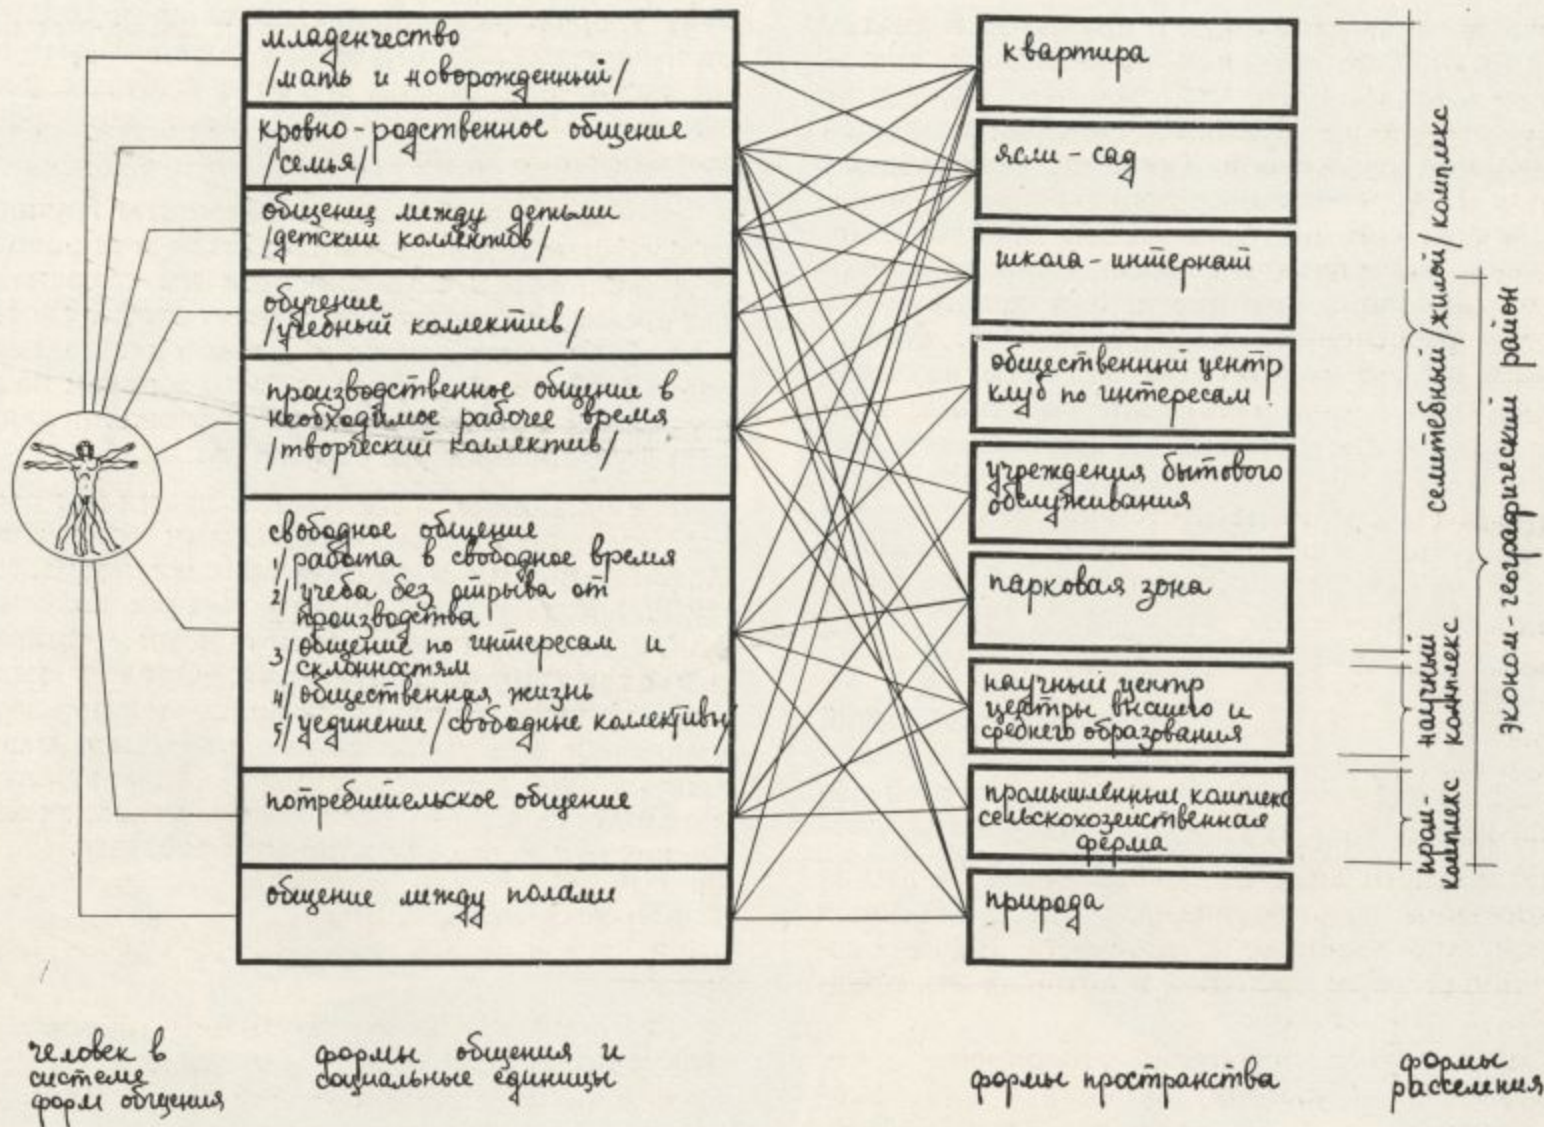 младенчество
/мать и новорожденный/
кровно-родственное общение
/семья/
общение между детьми
/детский коллектив/
обучение
/учебный коллектив/
производственное общение в
необходимое рабочее время
/творческий коллектив/
свободное общение
1/ работа в свободное время
2/ учеба без отрыва от
производства
3/ общение по интересам и
склонностям
4/ общественная жизнь
5/ уединение /свободные коллективы/
потребительское общение
общение между полами
квартира
ясли-сад
школа-интернат
общественный центр
клуб по интересам
учреждения бытового
обслуживания
парковая зона
научный центр
центры высшего и
среднего образования
промышленный комплекс
сельскохозяйственная
ферма
природа
селитебный /жилой/ комплекс
научный
комплекс
пром-
комплекс
эконом-географический район
человек в
системе
форм общения
формы общения и
социальные единицы
формы пространства
формы
расселения